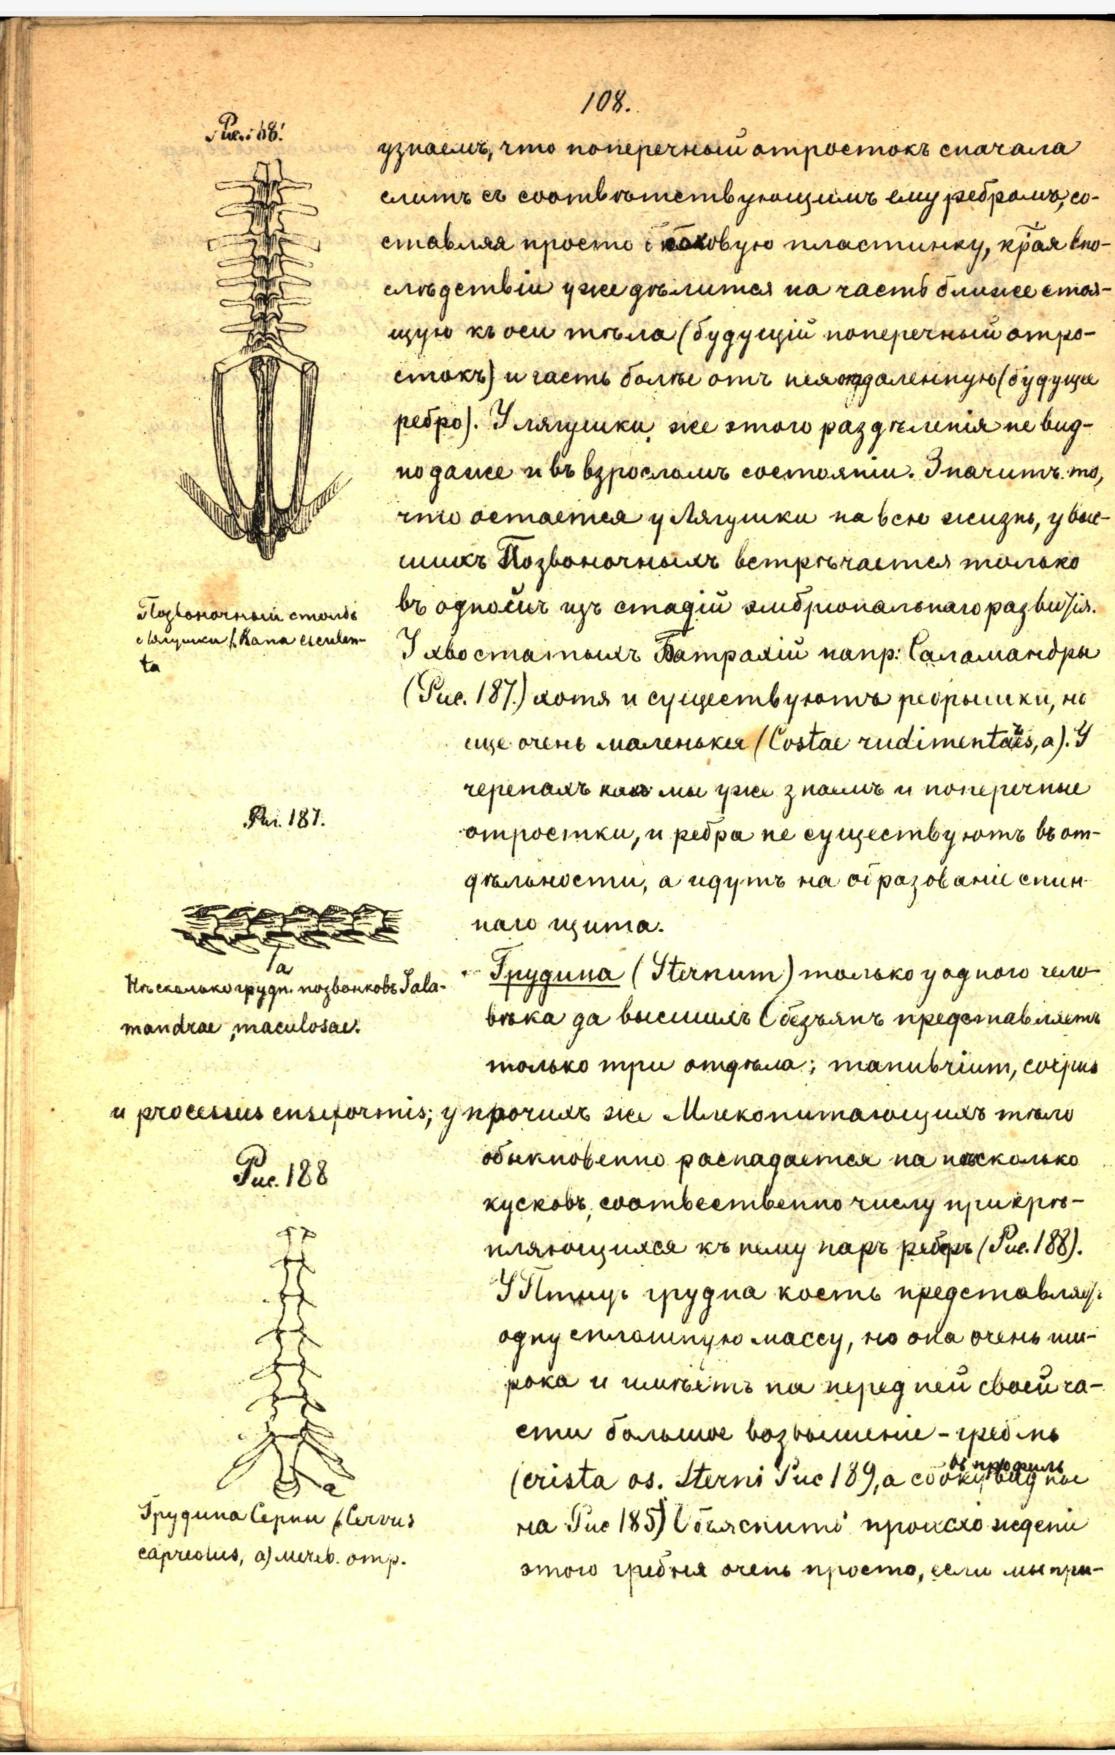 108.
Рис. 68.
узнаемъ, что поперечный отростокъ сначала
слитъ съ соотвѣтствующимъ ему ребромъ, со-
ставляя просто боковую пластинку, края впо-
слѣдствіи уже дѣлится на часть ближе стоя-
щую къ оси тѣла (будущій поперечный отро-
стокъ) и часть болѣе отъ нея отдаленную (будущее
ребро). У лягушки же этого раздѣленія не вид-
но даже и въ взросломъ состояніи. Значитъ то,
что остается у Лягушки на всю жизнь, у выс-
шихъ Позвоночныхъ встрѣчается только
въ одной изъ стадій эмбріональнаго развитія.
У хвостатыхъ Батрахій напр: Саламандры
(Рис. 187.) хотя и существуютъ ребрышки, но
еще очень маленькія (Costae rudimentares, a). У
черепахъ какъ мы уже знаемъ и поперечные
отростки, и ребра не существуютъ въ от-
дѣльности, а идутъ на образованіе спин-
наго щита.
Позвоночный столбъ
лягушки (Rana esculen-
ta
Рис. 187.
a
Нѣсколько грудн. позвонковъ Sala-
mandrae maculosae.
Грудина (Sternum) только у одного чело-
вѣка да высшихъ Обезьянъ представляетъ
только три отдѣла: manubrium, corpus
и processus ensiformis; у прочихъ же Млекопитающихъ тѣло
обыкновенно распадается на нѣсколько
кусковъ, соотвественно числу прикрѣ-
пляющихся къ нему паръ ребръ (Рис. 188).
У Птицъ грудна кость представляетъ
одну сплошную массу, но она очень ши-
рока и имѣетъ на передней своей ча-
сти большое возвышеніе - гребень
(crista os. sterni Рис 189, а сбоку въ профиль видное
на Рис 185) Объяснить происхожденіе
этого гребня очень просто, если мы при-
Рис. 188
a
Грудина Серны (Cervus
capreolus, a) мечев. отр.